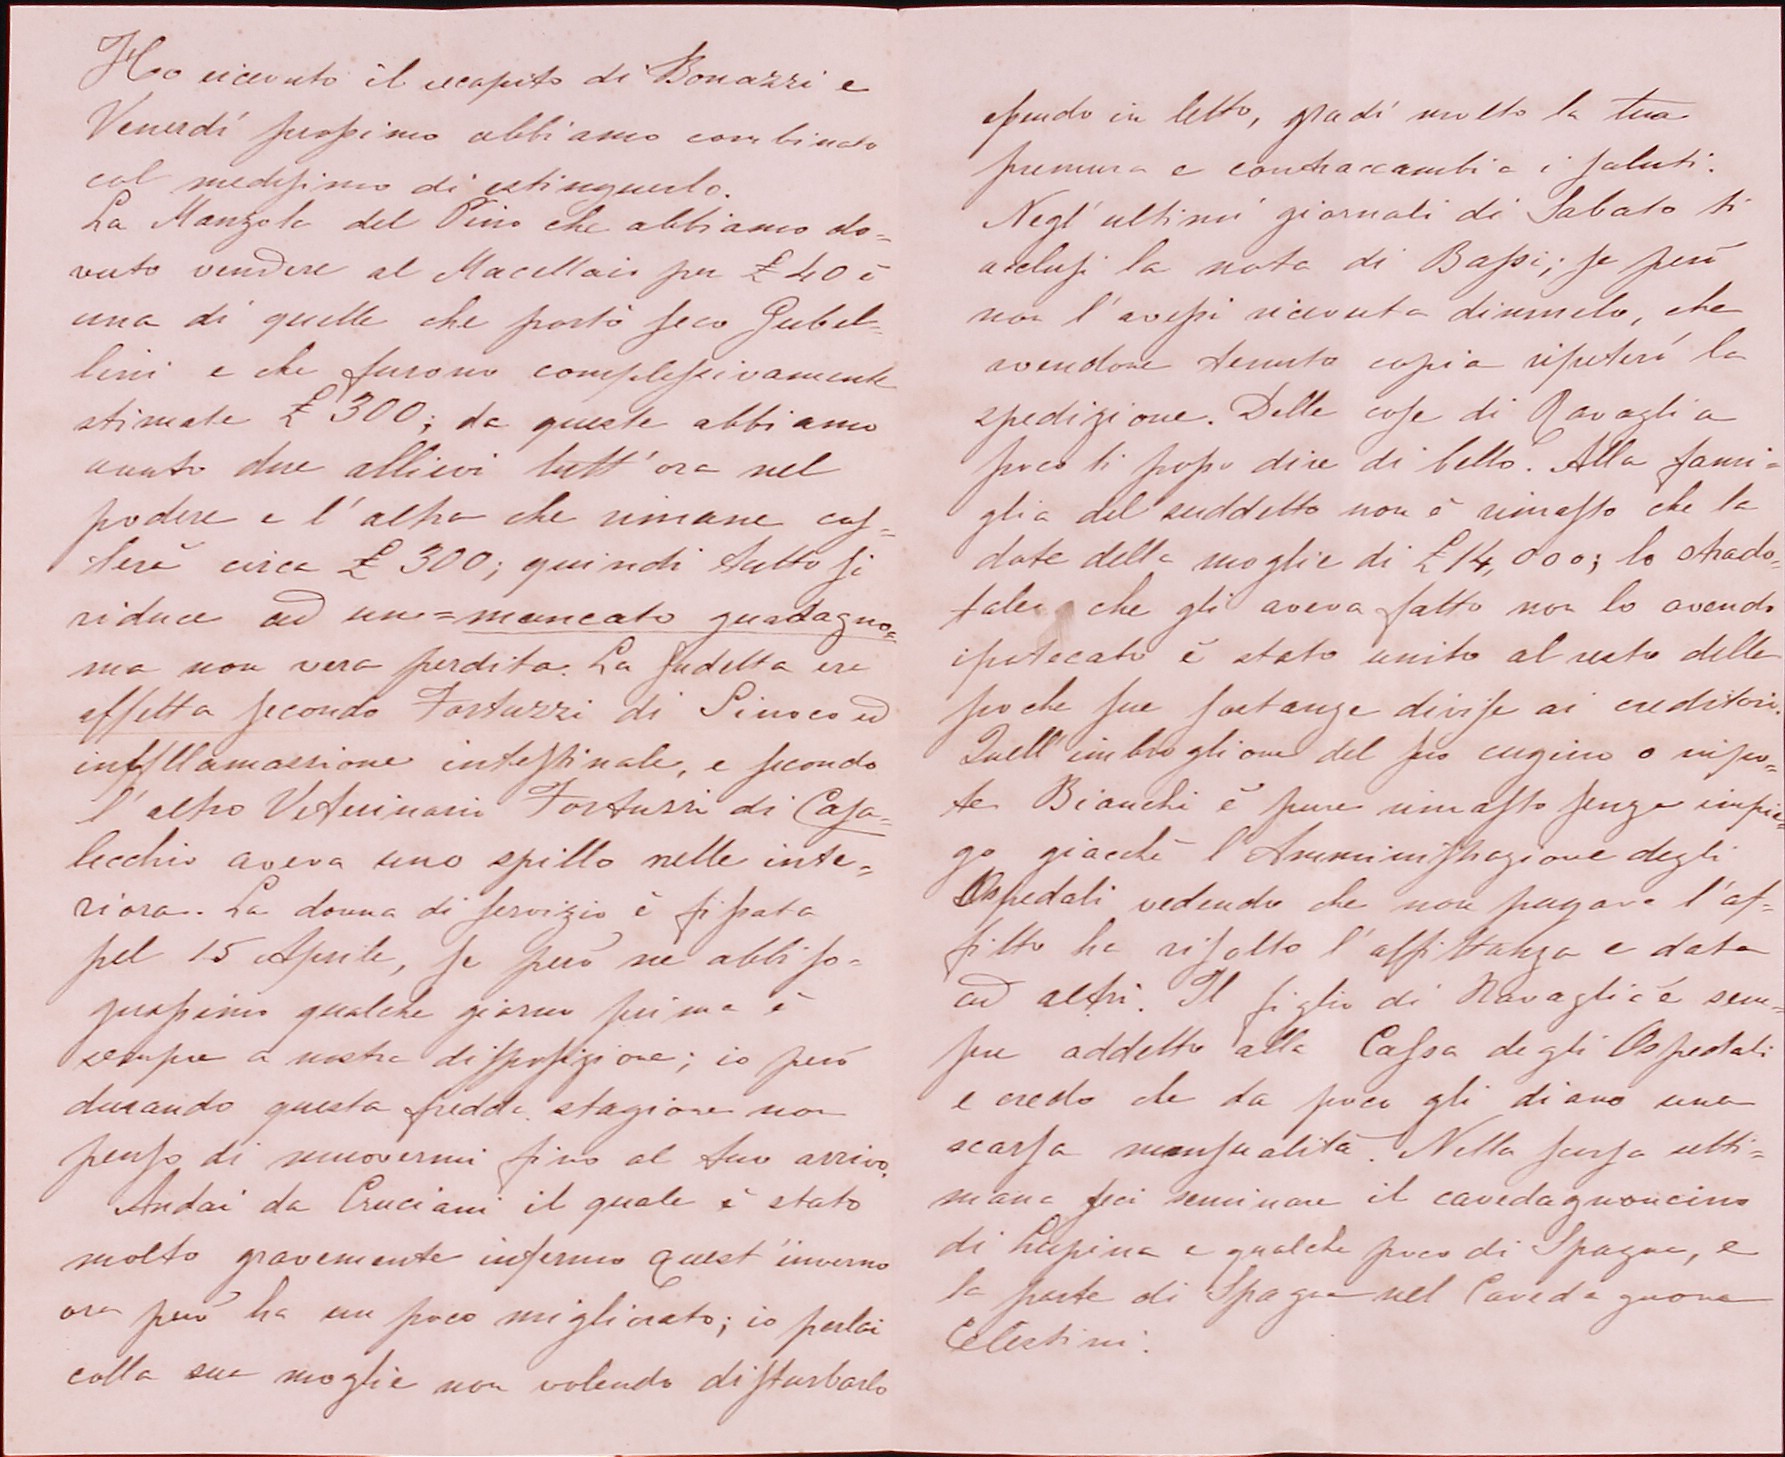 Ho ricevuto il recapito di Bonazzi e
Venerdí prossimo abbiamo combinato
col medesimo di estinguerlo.
La Manzola del Pino che abbiamo do=
vuto vendere al Macellaio per £ 40 è
una di quelle che portò seco Gubel=
lini e che furono complessivamente
stimate £ 300; da queste abbiamo
avuto due allievi tutt'ora nel
podere e l'altra che rimane cos=
terà circa £ 300; quindi tutto si
riduce ad un=mancato guadagno=
ma non vera perdita. La sudetta era
affetta secondo Fortuzzi di Sinoco ed
infillamassione intestinale, e secondo
l'altro Veterinario Fortuzzi di Casa=
lecchio aveva uno spillo nelle inte=
riora. La donna di servizio è fissata
pel 15 Aprile, se però ne abbiso=
gnassimo qualche giorno prima è
sempre a nostra disposizione; io però
durando questa fredda stagione non
penso di muovermi fino al tuo arrivo.
Andai da Cruciani il quale è stato
molto gravemente infermo quest'inverno
ora però ha un poco migliorato; io parlai
colla sua moglie non volendo disturbarlo
essendo in letto, gradí molto la tua
premura e contraccambia i saluti.
Negl'ultimi giornali di Sabato ti
acclusi la nota di Bassi; se però
non l'avessi ricevuta dimmelo, che
avendone tenuto copia ripeterò la
spedizione. Delle cose di Ravaglia
poco ti posso dire di bello. Alla fami=
glia del suddetto non è rimasto che la
dote della moglie di £ 14,000; lo strado=
tale che gli aveva fatto non lo avendo
ipotecato è stato unito al resto delle
poche sue sostanze divise ai creditori.
Quell'imbroglione del suo cugino o nipo=
te Bianchi è pure rimasto senza impie=
go giacchè l'Amministrazione degli
Ospedali vedendo che non pagava l'af=
fitto ha risolto l'affittanza e data
ad altri. Il figlio di Ravaglia è sem=
pre addetto alla Cassa degli Ospedali
e credo che da poco gli diano una
scarsa mensualità. Nella scorsa setti=
mana feci seminare il cavedagnoncino
di Lupina e qualche poco di Spagna, e
la parte di Spagna nel Cavedagnone
Celestini.